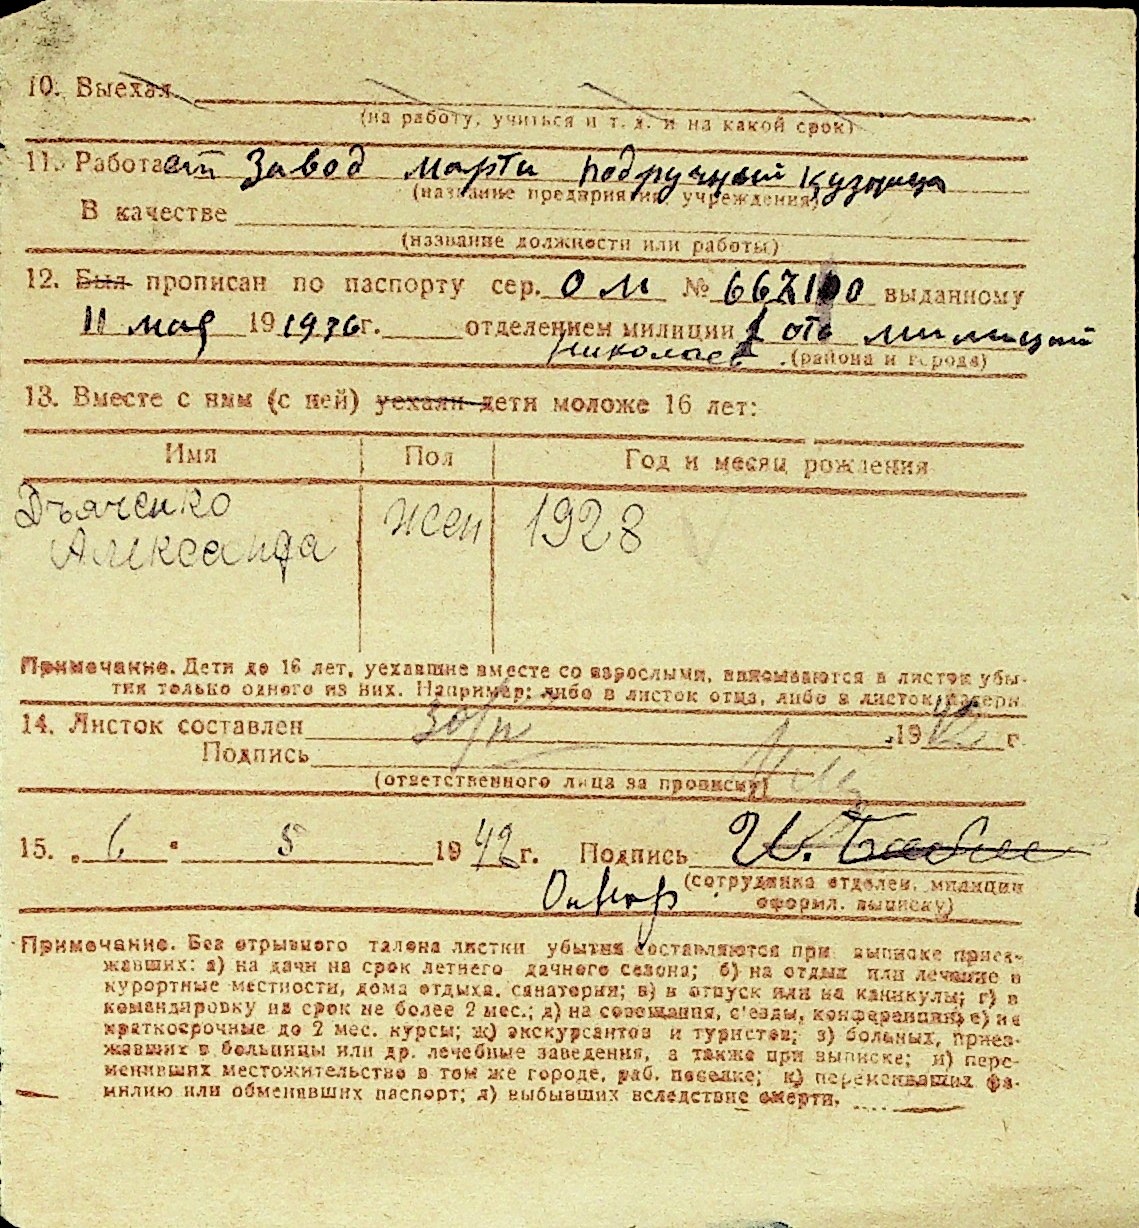 10. Выехал
(на работу, учиться и т. д. и на какой срок)
11. Работает Завод марти подручный кузница
(название предприятия, учреждения)
В качестве
(название должности или работы)
12. Был прописан по паспорту сер. ОМ № 667100 выданному
11 мая 19 1936 г. отделением милиции 1 отд милиции
Николаев (района и города)
13. Вместе с ним (с ней) уехали дети моложе 16 лет:
Имя Пол Год и месяц рождения
Дьяченко
Александра жен 1928
Примечание. Дети до 16 лет, уехавшие вместе со взрослыми, вписываются в листок убы-
тия только одного из них. Например: либо в листок отца, либо в листок матери.
14. Листок составлен 1942 г.
Подпись
(ответственного лица за прописку)
15. „ 6 " 5 1942 г. Подпись
(сотрудника отделен. милиции
оформл. выписку)
Примечание. Без отрывного талона листки убытия составляются при выписке приез-
жавших: а) на дачи на срок летнего дачного сезона; б) на отдых или лечение в
курортные местности, дома отдыха, санатории; в) в отпуск или на каникулы; г) в
командировку на срок не более 2 мес.; д) на совещания, с'езды, конференции; е) на
краткосрочные до 2 мес. курсы; ж) экскурсантов и туристов; з) больных, приез-
жавших в больницы или др. лечебные заведения, а также при выписке; и) пере-
менивших местожительство в том же городе, раб. поселке; к) переменивших фа-
милию или обменявших паспорт; л) выбывших вследствие смерти.